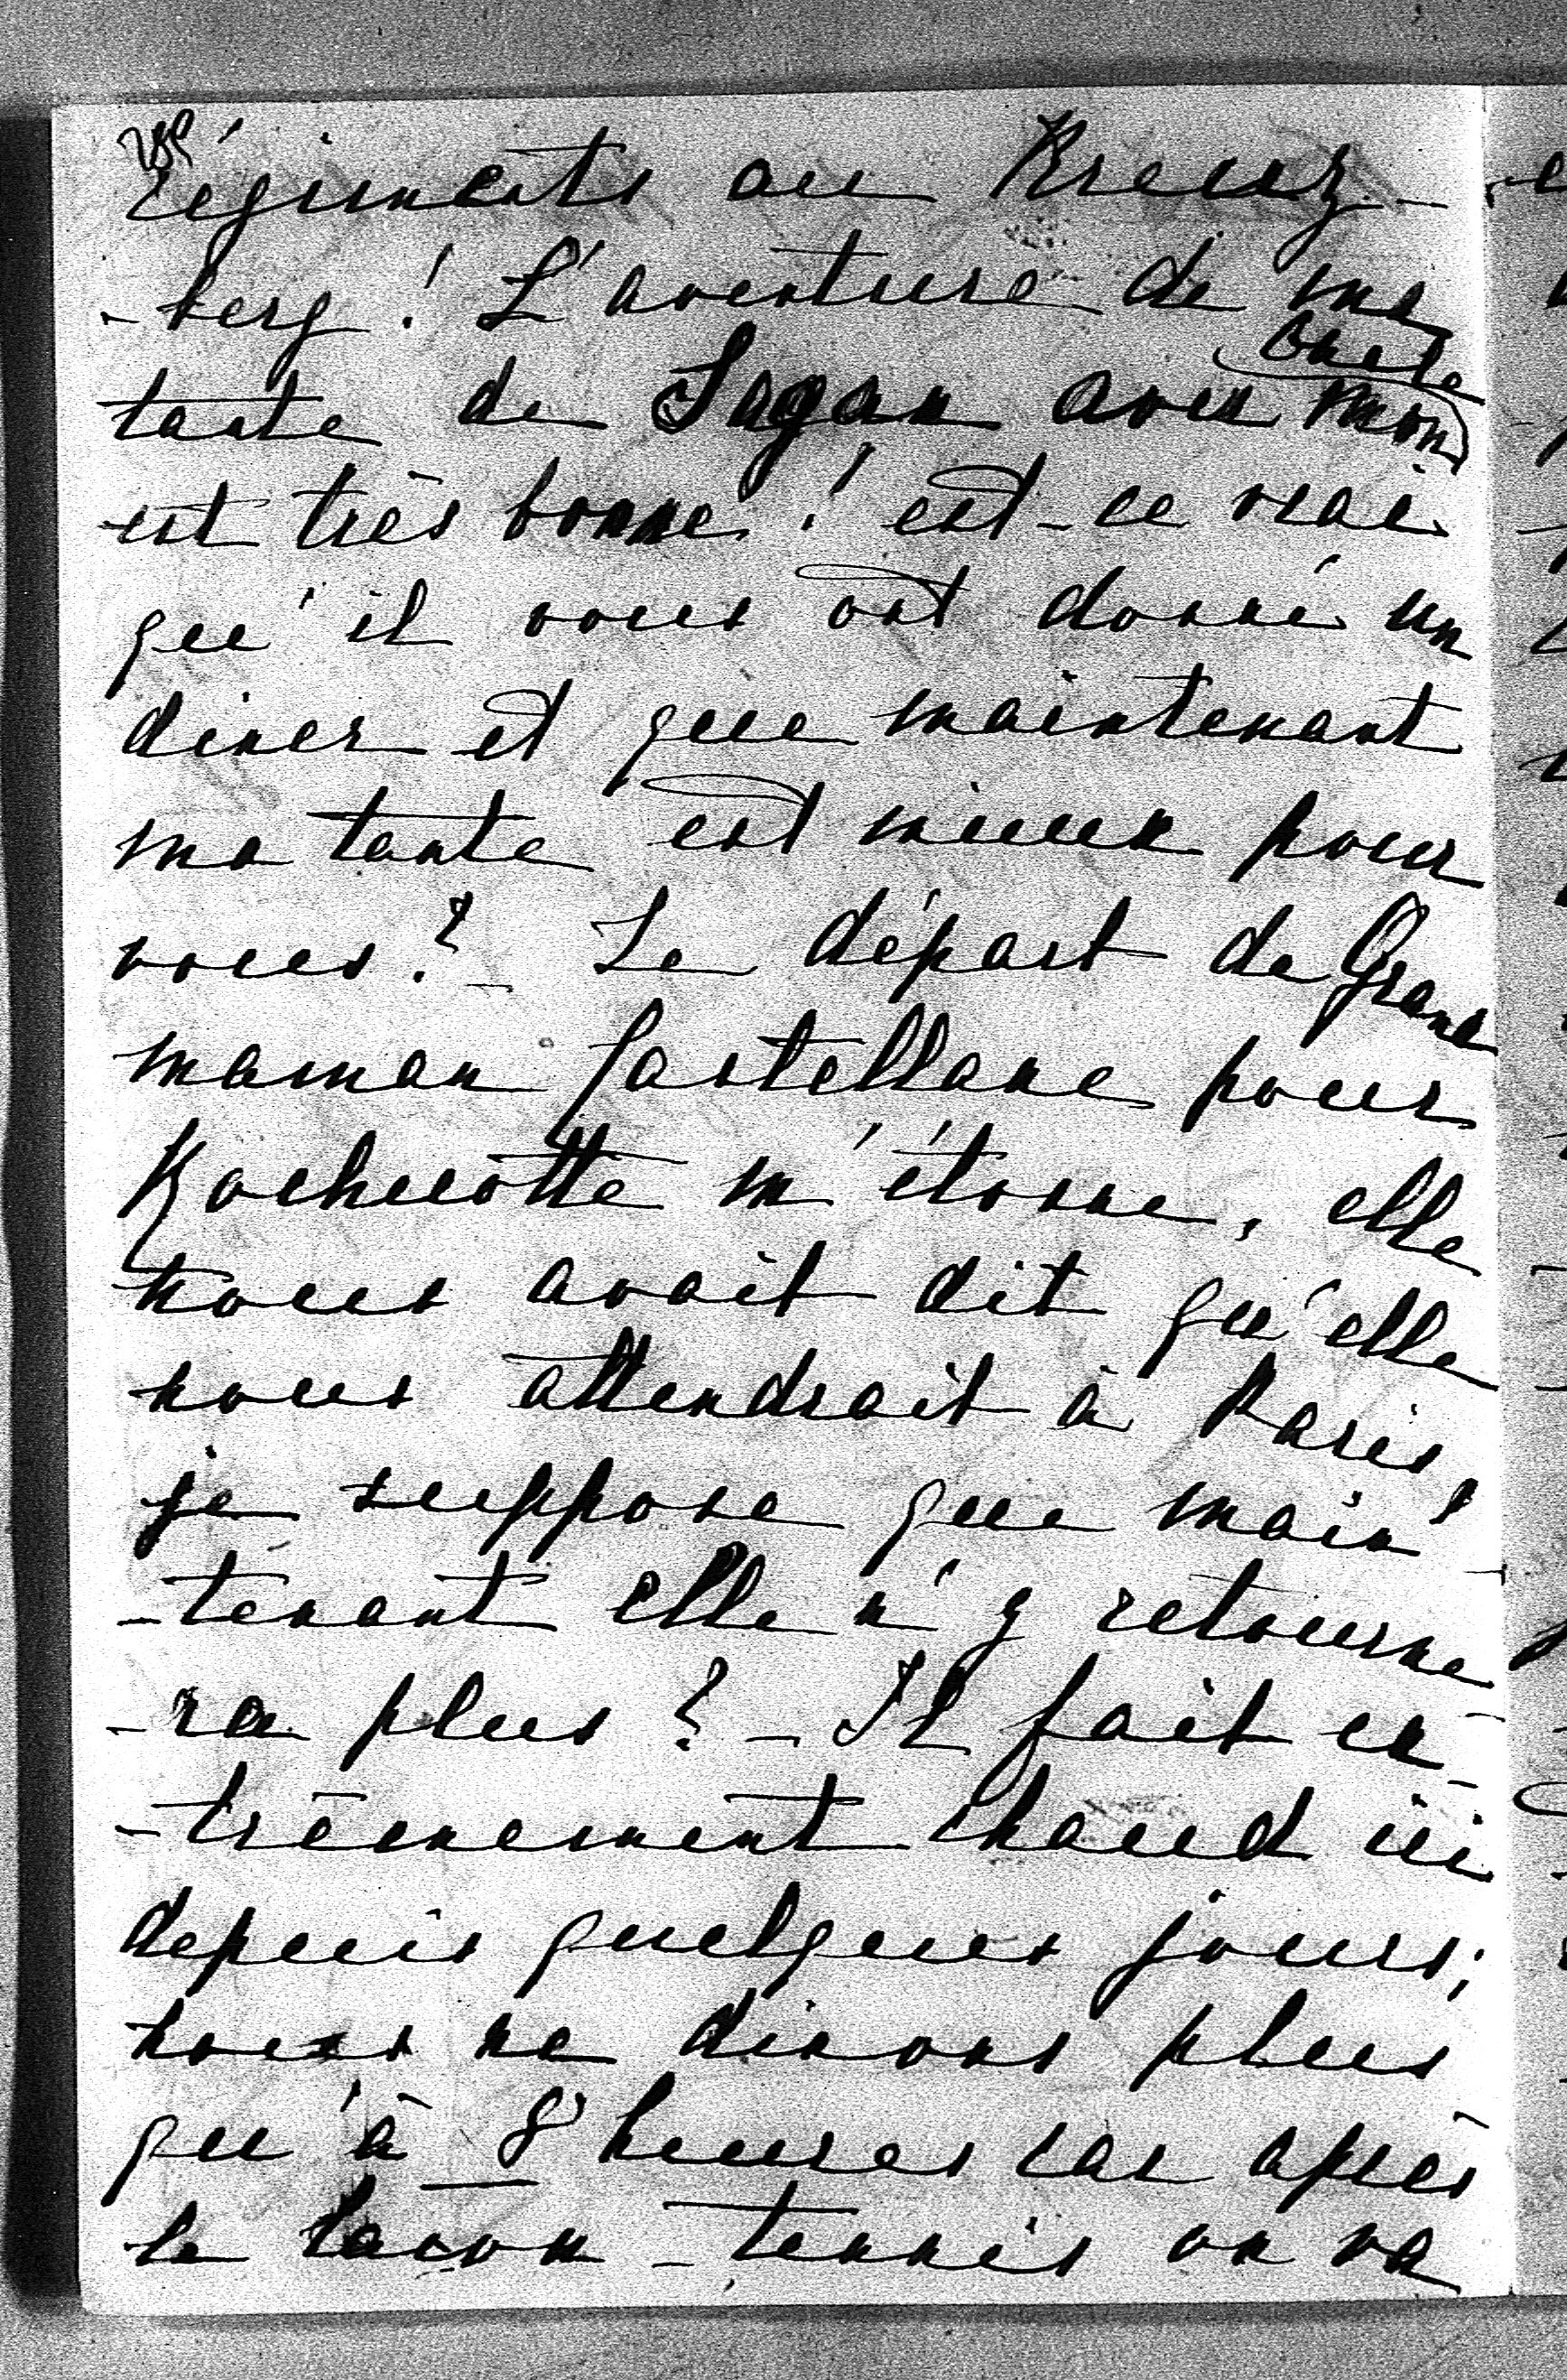 régiments au Kreuz-
-berg! L'aventure de ma
oncle
tante de Sagan avec mon
est très bonne! est-ce vrai
qu'il vous ont donné un
diner et que maintenant
ma tante est mieux pour
vous? - Le départ de Grand
maman Castellane pour
Rochecotte m'étonne, elle
nous avait dit qu'elle
nous attendrait à Paris,
je suppose que main-
-tenant elle n'y retourne
-ra plus? - Il fait ex-
-trêmement chaud ici
depuis quelques jours;
nous ne dinons plus
qu'à 8 heures car après
le lawn-tennis on va